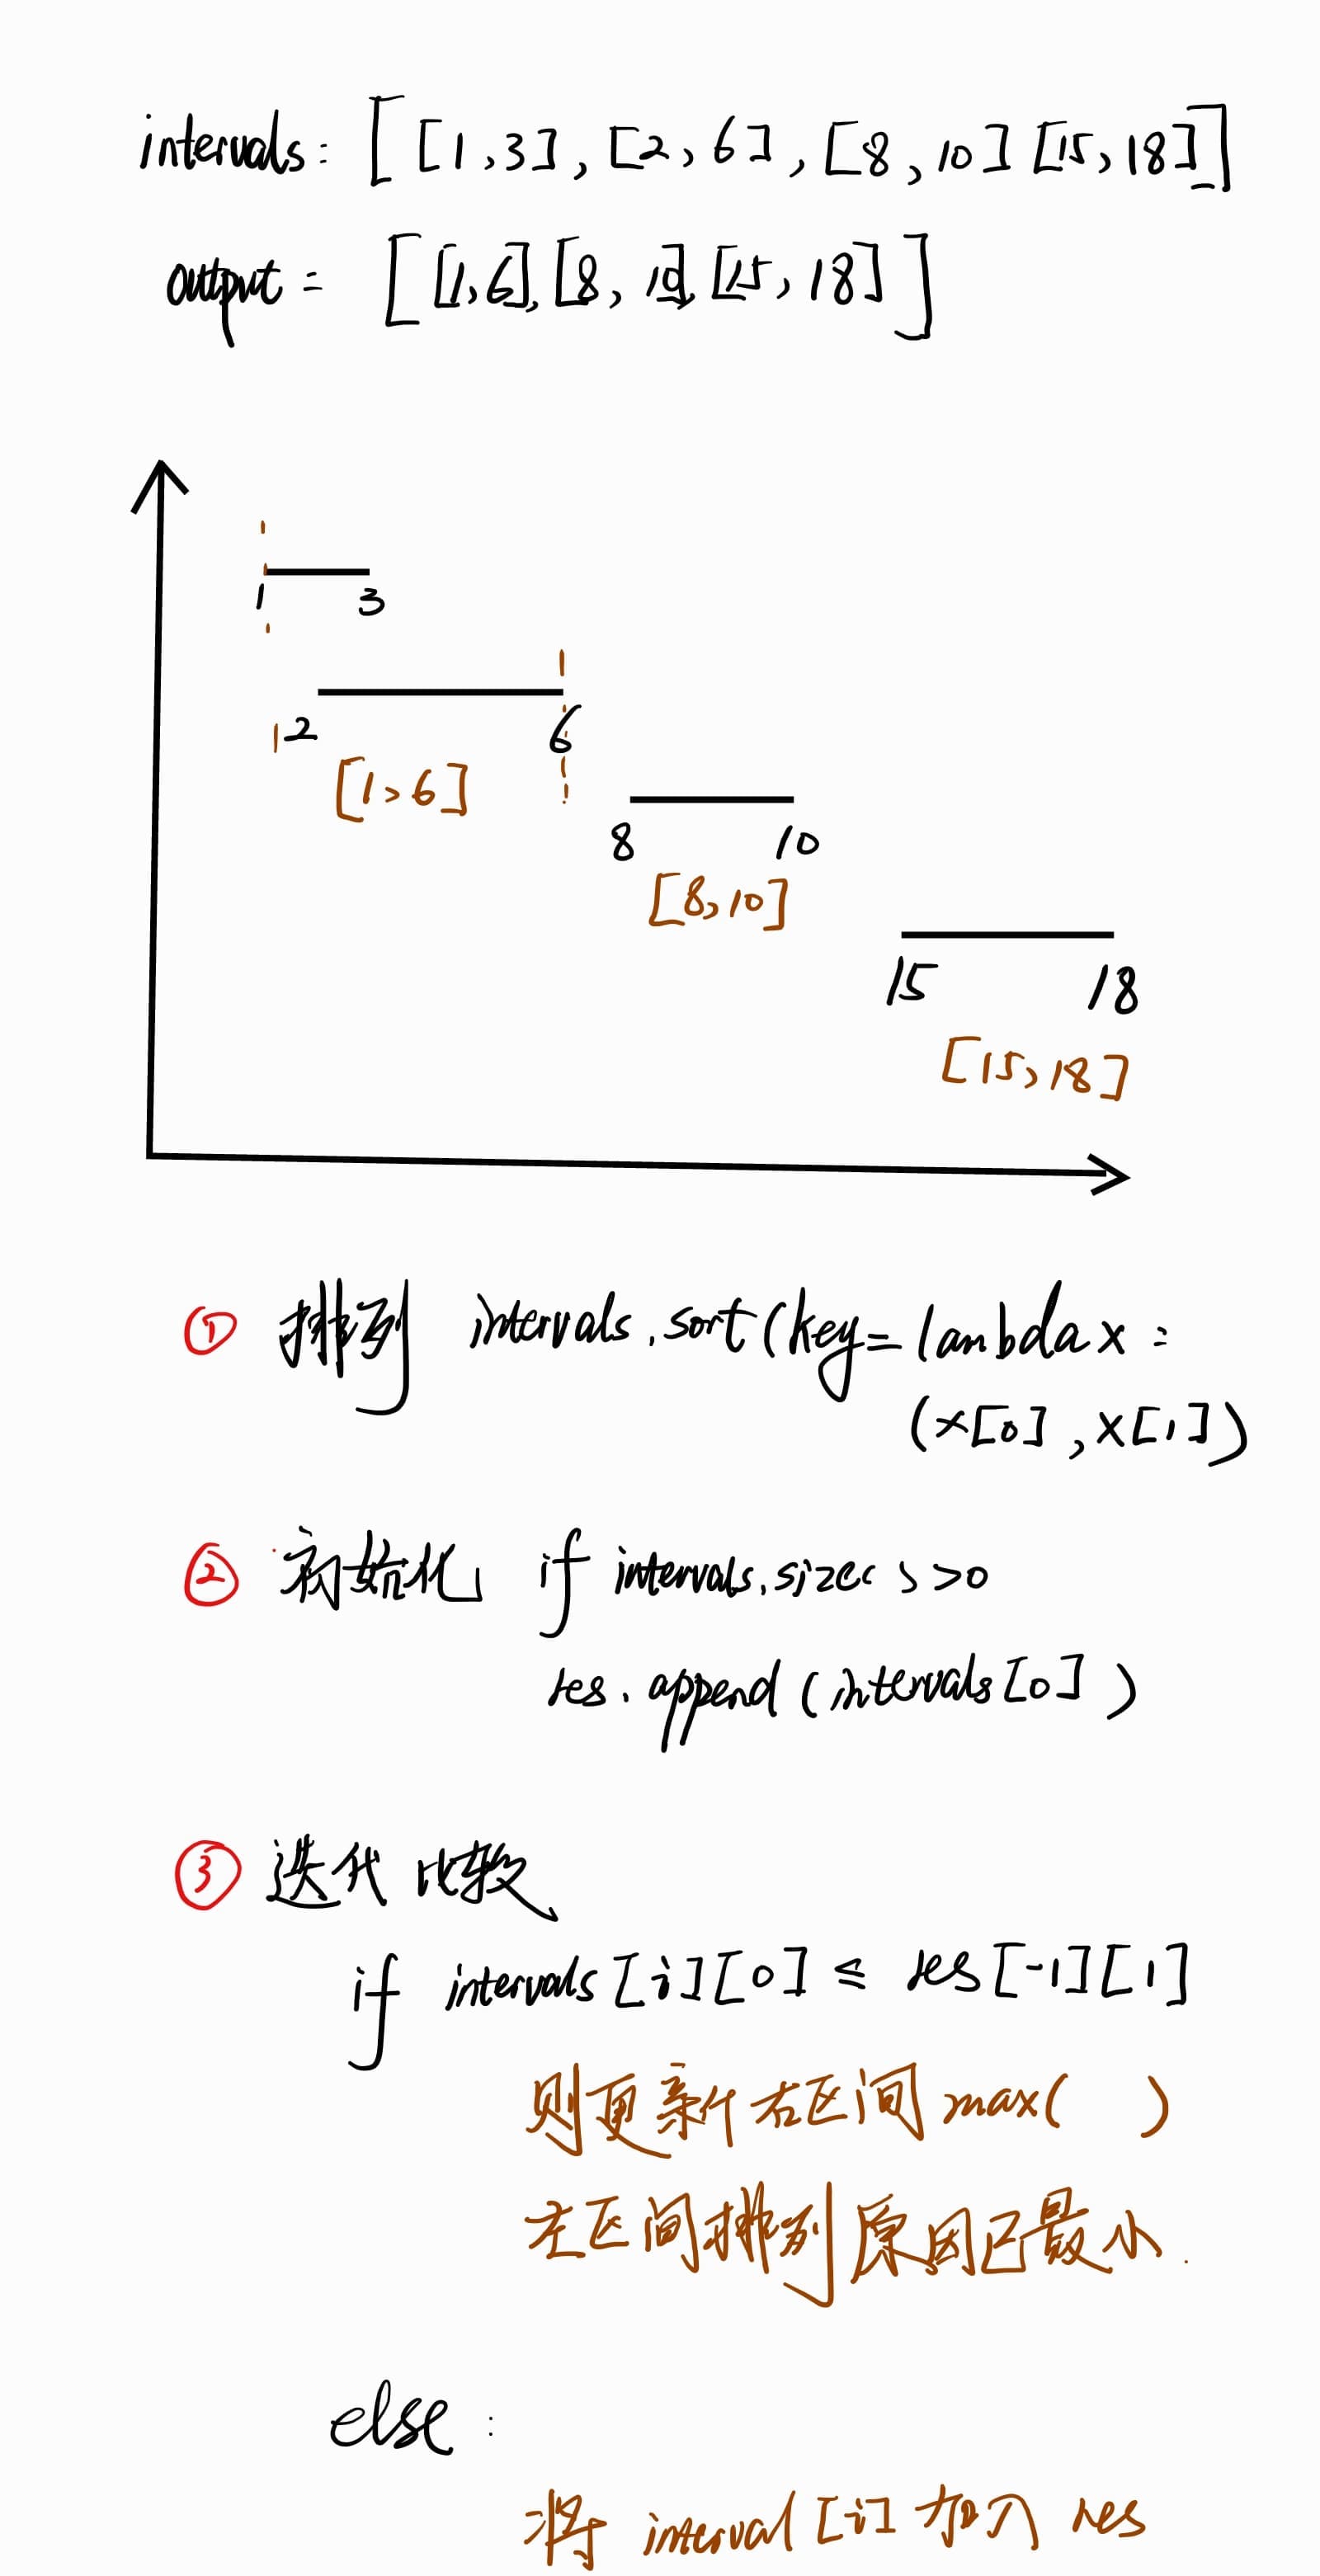 intervals: [ [1,3], [2,6], [8,10] [15,18]]
output = [ [1,6], [8,10], [15,18] ]
1 3
2 6
[1,6]
8 10
[8,10]
15 18
[15,18]
① 排列 intervals.sort(key=lambda x:
(x[0],x[1])
② 初始化 if intervals.size()>0
res.append(intervals[0])
③ 迭代比较
if intervals[i][0] ≤ res[-1][1]
则更新右区间max( )
左区间排列原因已最小.
else:
将 interval[i] 加入 res